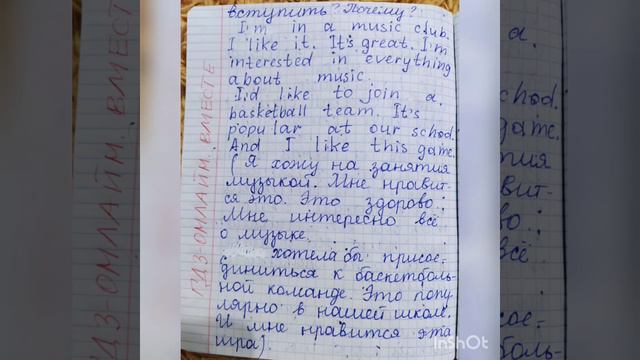 вступить? Почему?
I'm in a music club.
I like it. It's great. I'm
interested in everything
about music.
I'd like to join a
basketball team. It's
popular at our school.
And I like this game.
(Я хожу на занятия
музыкой. Мне нравит-
ся это. Это здорово.
Мне интересно всё
о музыке.
хотела бы присое-
диниться к баскетболь-
ной команде. Это попу
лярно в нашей школе.
И мне нравится эта
игра).
ГДЗ-ОМЛАЙМ. ВМЕСТЕ
InShOt